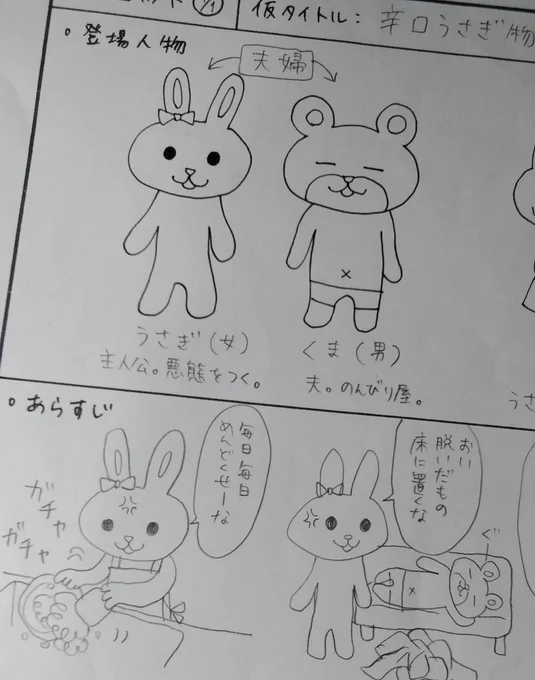 仮タイトル: 辛口うさぎ物
。登場人物
夫婦
うさぎ(女)
主人公。悪態をつく。
くま(男)
夫。のんびり屋。
うさ
。あらすじ
毎日毎日
めんどくせーな
ガチャ
ガチャ
おい
脱いだもの
床に置くな
ぐー